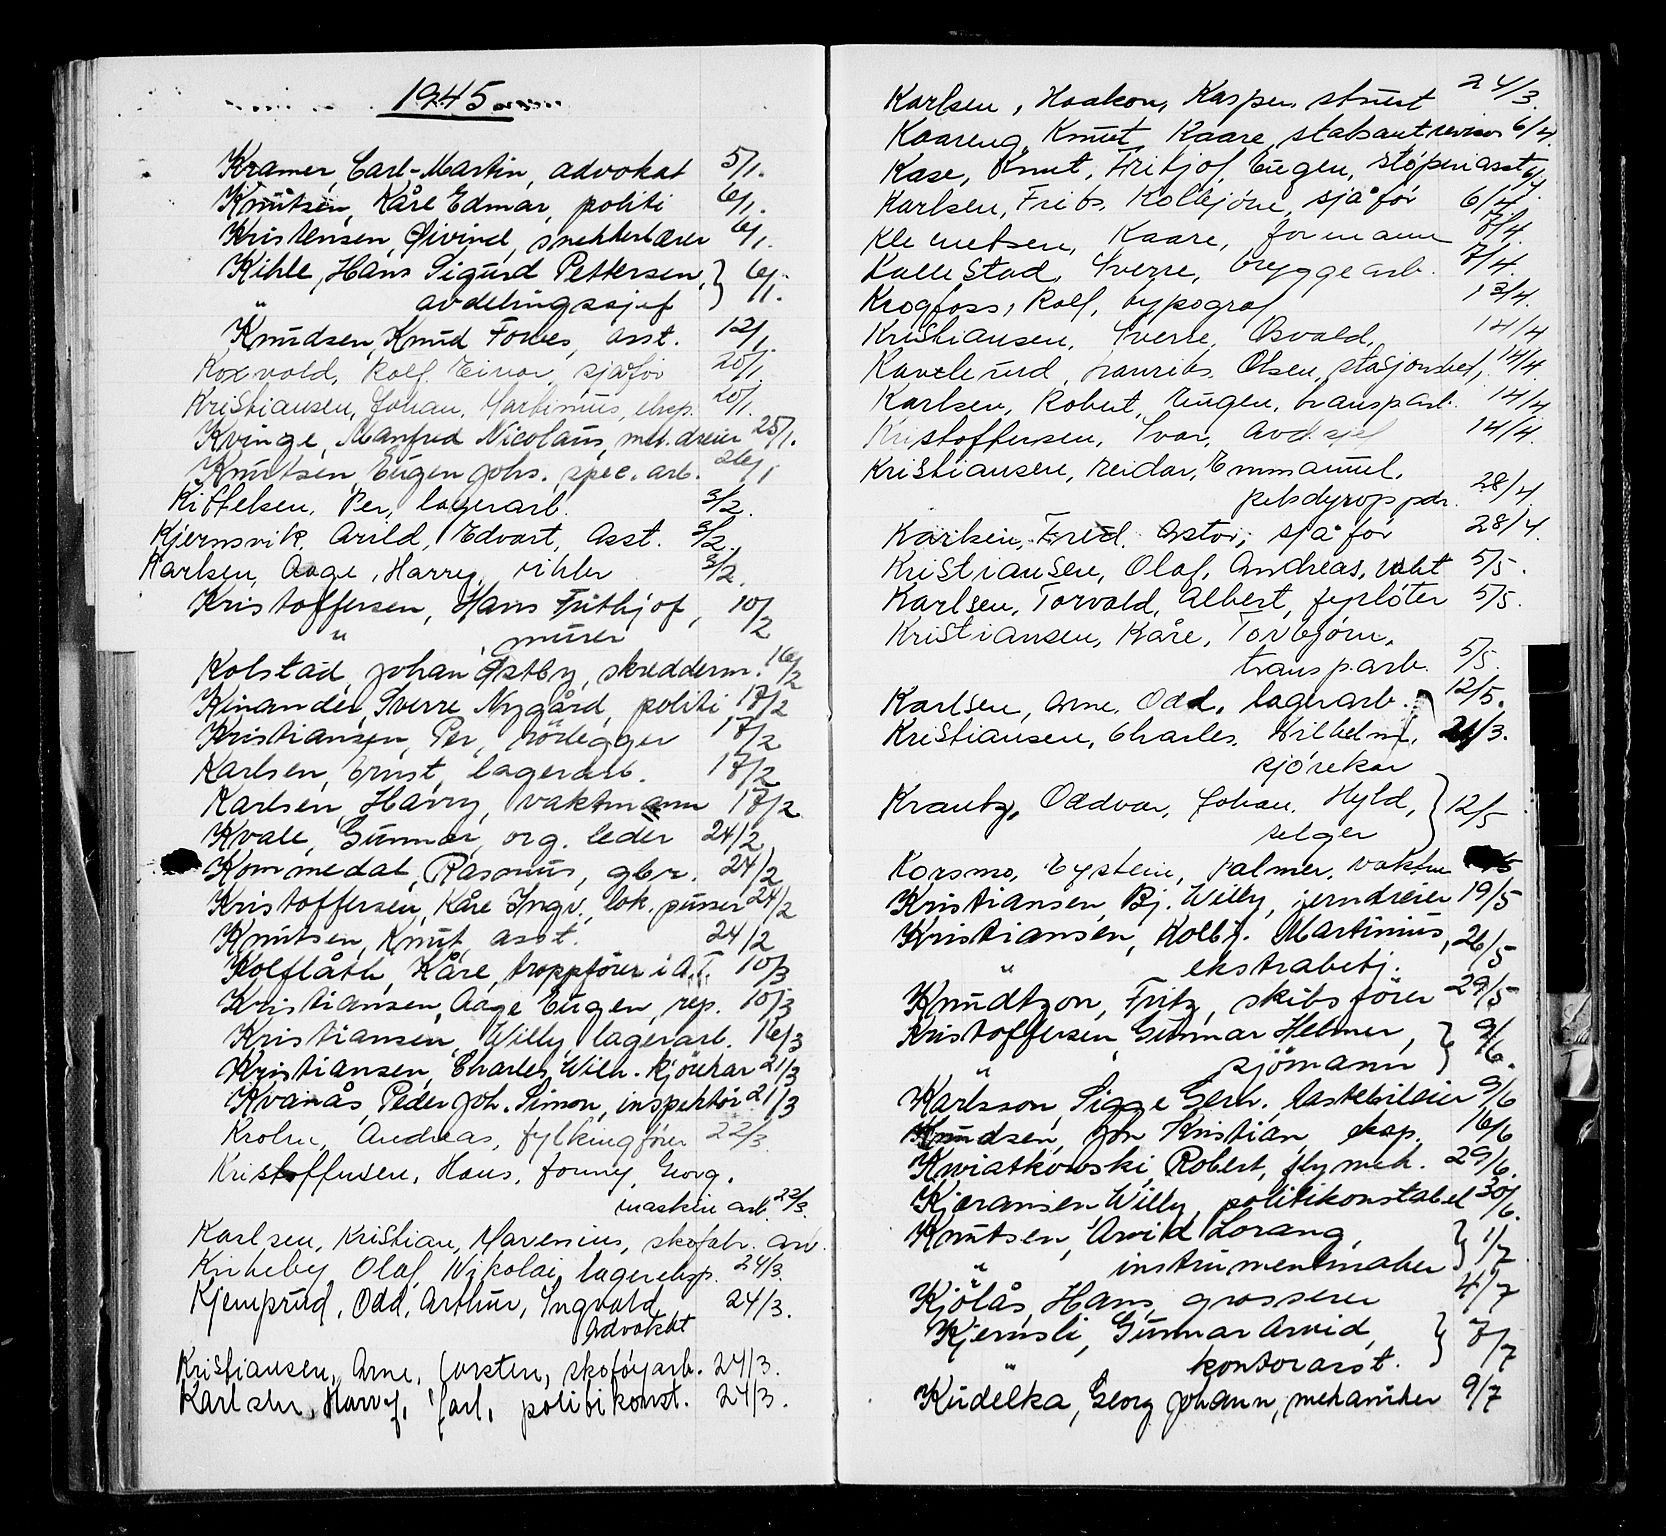 1945
Kramer, Carl-Martin, advokat 5/1.
Knutsen, Kåre Edmar, politi 6/1.
Kristensen, Øivind, snekkerlærer 6/1.
Kihle, Hans Sigurd Pettersen, } 6/1.
" avdelingssjef
Knudsen, Knud Forbes, asst. 12/1.
Roxvold, Rolf Einar, sjåfør 20/1.
Kristiansen, Johan, Martinius, eksp. 20/1.
Kvinge, Manfred Nicolaus, met.dreier 25/1.
Knutsen, Eugen Johs. spec. arb. 26/1
Kittelsen, Per, lagerarb. 3/2.
Kjernsvik, Arild, Edvart, Asst. 3/2.
Karlsen, Aage, Harry, 3/2.
Kristoffersen, Hans Frithjof, 10/2
" murer
Kolstad, Johan Østby, skredderm. 16/2
Kinander, Sverre Nygård, politi 17/2
Kristiansen, Per, rörlegger 17/2
Karlsen, Ernst, lagerarb. 17/2
Karlsen, Harry, vaktmann 17/2
Kvale, Gunnar, org. leder 24/2
Kommedal, Rasmus, gbr. 24/2
Kristoffersen, Kåre Ingv., lok. pusser 24/2
Knutsen, Knut, asst. 24/2
Kolflåth, Kåre, troppförer i A.T. 10/3
Kristiansen, Aage Eugen, rep. 10/3
Kristiansen, Willy, lagerarb. 16/3
Kristiansen, Charles Wilh. kjörekar 21/3
Kvanås, Peder Joh. Simon, inspektör 21/3
Krohn, Andreas, fylkingfører 22/3.
Kristoffersen, Hans, Jonny, Georg,
maskin arb. 22/3.
Karlsen, Kristian, Marenius, skofabr. arb.
Kirkeby, Olaf, Nikolai, lagereksp. 24/3.
Kjemprud, Odd, Arthur, Ingvald, 24/3.
Advokat
Kristiansen, Arne, Torsten, skotøyarb. 24/3.
Karlsen, Harry, Carl, politikonst. 24/3.
Karlsen, Haakon, Kasper, 24/3.
Kaareng, Knut, Kaare, statsautrevisor 6/4.
Kase, Knut, Fritjof, Eugen, støperiasst 6/4.
Karlsen, Frits, Kolbjörn, sjåför 6/4
Klemetsen, Kaare, formann 7/4.
Kallestad, Sverre, bryggearb. 7/4.
Krogfoss, Rolf, typograf 13/4.
Kristiansen, Sverre, Osvald, 14/4
Olsen, stasjonsbet, 14/4.
Karlsen, Robert, Eugen, transparb. 14/4
Kristoffersen, Ivar, Avd.sjef 14/4.
Kristiansen, Reidar, Emmanuel,
pelsdyroppdr. 28/4.
Karlsen, Fred. Astor, sjåfør 28/4.
Kristiansen, Olaf, Andreas, vakt 5/5.
Karlsen, Torvald, Albert, fyrbøter 5/5.
Kristiansen, Kåre, Torbjørn,
transp.arb. 5/5.
Karlsen, Arne, Odd, lagerarb. 12/5.
Kristiansen, Charles, Wilhelm, 21/3.
kjørekar
Krantz, Oddvar, Johan, Hyld, } 12/5
selger
Korsmo, Eystein, Palmer, vaktm
Kristiansen, Bj. Willy, jerndreier 19/5
Kristiansen, Kolbj. Martinius, 26/5
" ekstrabetj.
Knudtzon, Fritz, skibsförer 29/5
Kristoffersen, Gunnar Helmer, } 9/6.
" sjömann
Karlsson, Sigge Gerh. lastebileier 9/6
Knudsen, Jon Kristian, eksp. 16/6
Kwiatkowski, Robert, flymek. 29/6.
Kjæransen Willy, politikonstabel 30/6.
Knutsen, Arvid Lorang, } 1/7
" instrumentmaker
Kjölås, Hans, grosserer 4/7
Kjernsli, Gunnar Arvid, } 7/7
" kontorasst.
Kudelka, Georg Johann, mekaniker 9/7